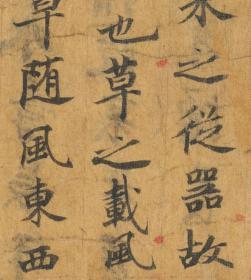 之從器故
也草之載風
草随風東西